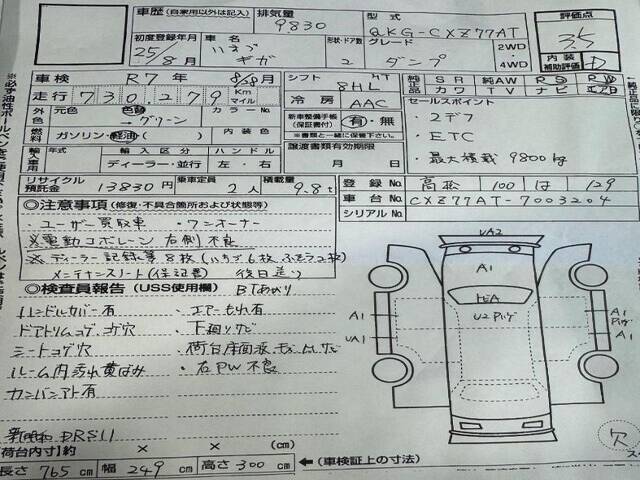 車歴 (自家用以外は記入) 排気量 9830 型式 QKG-CXZ77AT 評価点 3.5
初度登録年月 25年/8月 車名 いすゞ ギガ 形状・ドア数 2 グレード ダンプ 2WD 4WD 内装補助評価 D
車検 R7年 8月 シフト MT 8HL 純正品 SR 純AW カワ TV ナビ
走行 730,279 Km マイル 冷房 AAC セールスポイント
外色 元色 色替 グリーン カラーNo. 新車整備手帳(保証書付) 有・無 ※書類と一緒に保管下さい。 ・2デフ
燃料 ガソリン・軽油・( ) 内装色 譲渡書類有効期限 ・ETC
輸入車用 年式 輸入区分 ディーラー・並行 ハンドル 左・右 月 日 ・最大積載 9800kg
リサイクル預託金 13830円 乗車定員 2人 積載量 9.8t 登録No. 高松 100 は 129
車台No. CXZ77AT-7003204
シリアルNo.
◎注意事項 (修復・不具合箇所および状態等)
・ユーザー買取車 ・ワンオーナー
※電動コボレーン 右側 不良
※ディーラー記録簿 8枚
メンテナンスノート(保証書) 後日送り
◎検査員報告 (USS使用欄) BTあがり
ハンドルカバー有 ・エアーもれ有
ドアトリムコゲ穴 ・下廻りサビ
シートコゲ穴
ルーム内汚れ黄ばみ ・右PW不良
カンバンアト有
新明和 DRS11
【荷台内寸】約 × × (cm)
長さ 765cm 幅 249cm 高さ 300cm ←(車検証上の寸法)
UA2
A1
A1
UA1
A1
A1
穴